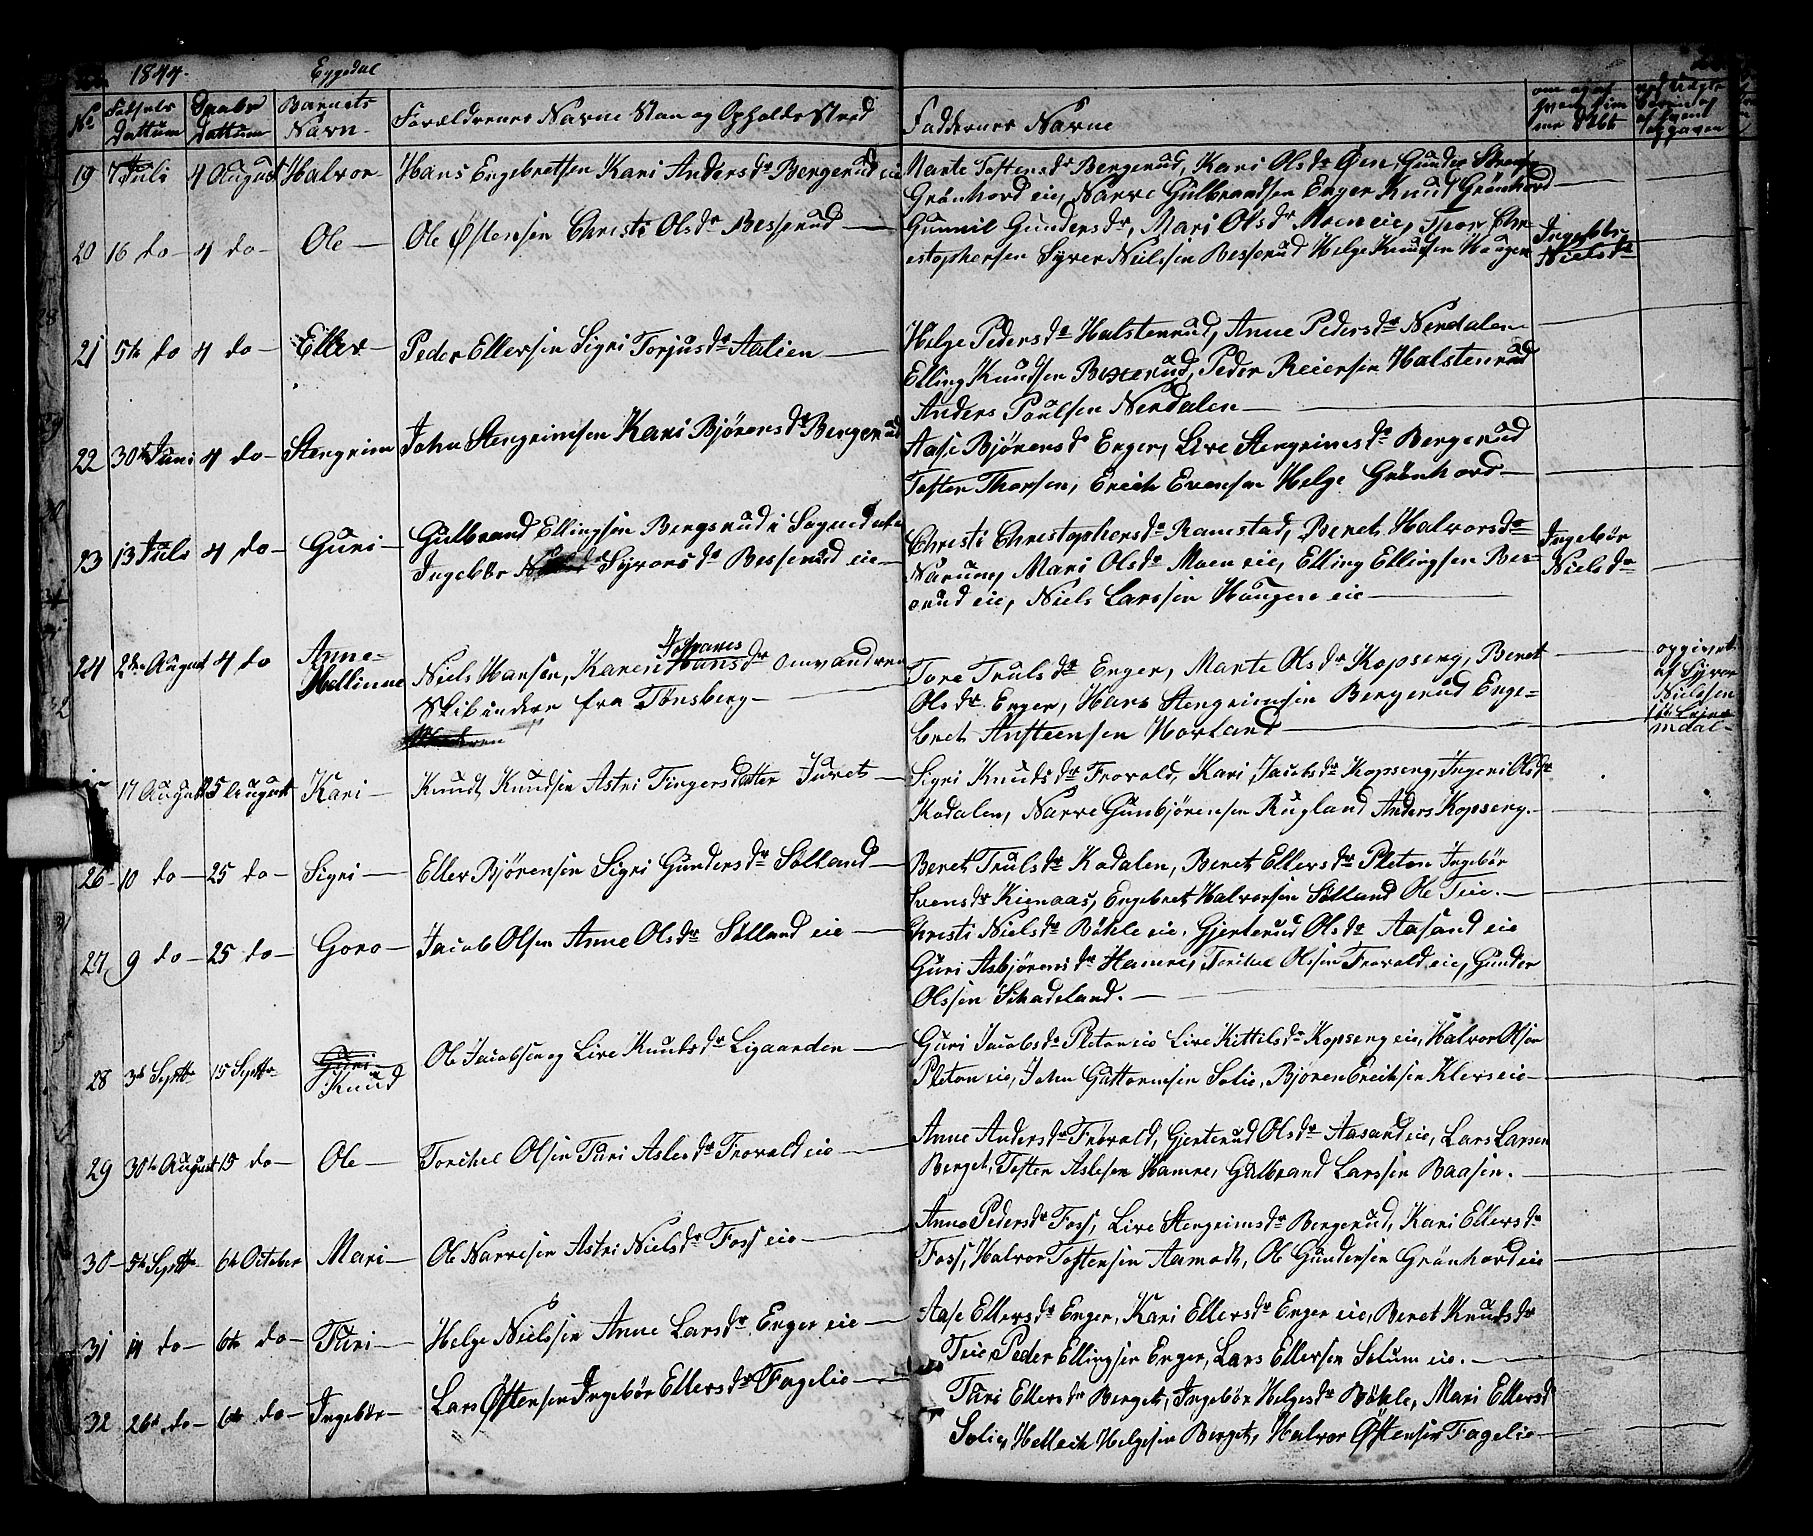 1844. Eggedal
No Fødsels Dattum Daabs Dattum Barnets Navn Forældrenes Navne Stan og Opholds Sted Faddernes Navne om og af hvem hjemme døbt
19 7 Juli 4 August Halvor Hans Engebretsen Kari Andersdr Bergerud eie Marte Tostensdr Bergerud, Kari Olsdr Øen, Gunder
Grønhord eie, Narve Gulbrandsen Enger Knud Grønhord
20 16 do 4 do Ole Ole Østensen Christi Olsdr Besserud Gunnil Gundersdr, Mari Olsdr Moen eie, Thor Chr-
istophersen Syver Nielsen Besserud Helge Knudsen Haugen Ingebør Nielsdr
21 5te do 4 do Eller Peder Ellersen Sigri Torjusdr Aalien Helge Pedersdr Halstenrud, Anne Pedersdr Nerdalen
Elling Knudsen Besserud, Peder Reiersen Halstenrud
Anders Poulsen Nerdalen
22 30te Juni 4 do Stengrim John Stengrimsen Kari Bjørensdr Bergerud Aase Bjørensdr Enger, Live Stengrimsdr Bergerud
Tosten Thorsen, Erich Evensen Helge Grønhord
23 13 Juli 4 do Guri Gulbrand Ellingsen Bergsrud i Sognedalen
Ingebør Syversdr Besserud eie Christi Christophersdr Ramstad, Beret Halvorsdr
Narum, Mari Olsdr Moen eie, Elling Ellingsen Bes-
serud eie, Niels Larssen Haugen eie Ingebør Nielsdr
24 2den August 4 do Anne-
Hellinne Niels Hansen, Karen Johanes Hansdr omvandren
Skibindere fra Tønsberg Tore Trulsdr Enger, Marte Olsdr Kopseng, Beret
Olsdr Enger, Hans Stengrimsen Bergerud Enge-
bret Anstensen Horland opgivet af Syver Nielsen
17 August 25 August Kari Knud Knudsen Astri Fingersdatter Juvet Sigri Knudsdr Frovold, Kari Jacobsdr Kopseng, Ingeri Olsdr
Kodalen, Narve Gunbjørensen Rugland Anders Kopseng.
26 10 do 25 do Sigri Eller Bjørensen Sigri Gundersdr Sølland Beret Trulsdr Kodalen, Beret Ellersdr Pleton Ingebør
Svensdr Kienaas, Engebret Halvorsen Sølland Ole Teie.
27 9 do 25 do Goro Jacob Olsen Anne Olsdr Sølland eie Christi Nielsdr Bøhle eie, Gjerterud Olsdr Aasand eie
Guri Asbjørensdr Hamre, Torichel Olssen Frovold eie, Gunder
Olssen Skadeland.
28 3de Septbr 15 Septbr Guri
Knud Ole Jacobsen og Live Knudsdr Ligaarden Guri Jacobsdr Pleton eie Live Kittilsdr Kopseng eie, Halvor Olsen
Pleton eie, John Guttormsen Solie, Bjøren Erichsen Klevs eie
29 30te August 15 do Ole Torichel Olsen Turi Aslesdr Frovold eie Anne Andersdr Frøvold, Gjerterud Olsdr Aasand eie, Lars Larsen
Berget, Tosten Aslesen Hamre, Gulbrand Larssen Baasen.
30 5te Septbr 6te October Mari Ole Narvesen Astri Nielsdr Foss eie Anne Pedersdr Foss, Live Stengrimsdr Bergerud, Kari Ellersdr
Foss, Halvor Tostensen Aamodt, Ole Gundersen Grønhord eie
31 11 do 6te do Turi Helge Nielssen Anne Larsdr Enger eie Aase Ellersdr Enger, Kari Ellersdr Enger eie, Beret Knudsdr
Teie Peder Ellingsen Enger, Lars Ellersen Solum eie.
32 26de do 6te do Ingebør Lars Østensen Ingebør Ellersdr Fagelie Turi Ellersdr Berget, Ingebør Helgesdr Bøhle, Mari Ellersd
Solie, Hellech Helgesen Berget, Halvor Østensen Fagelie